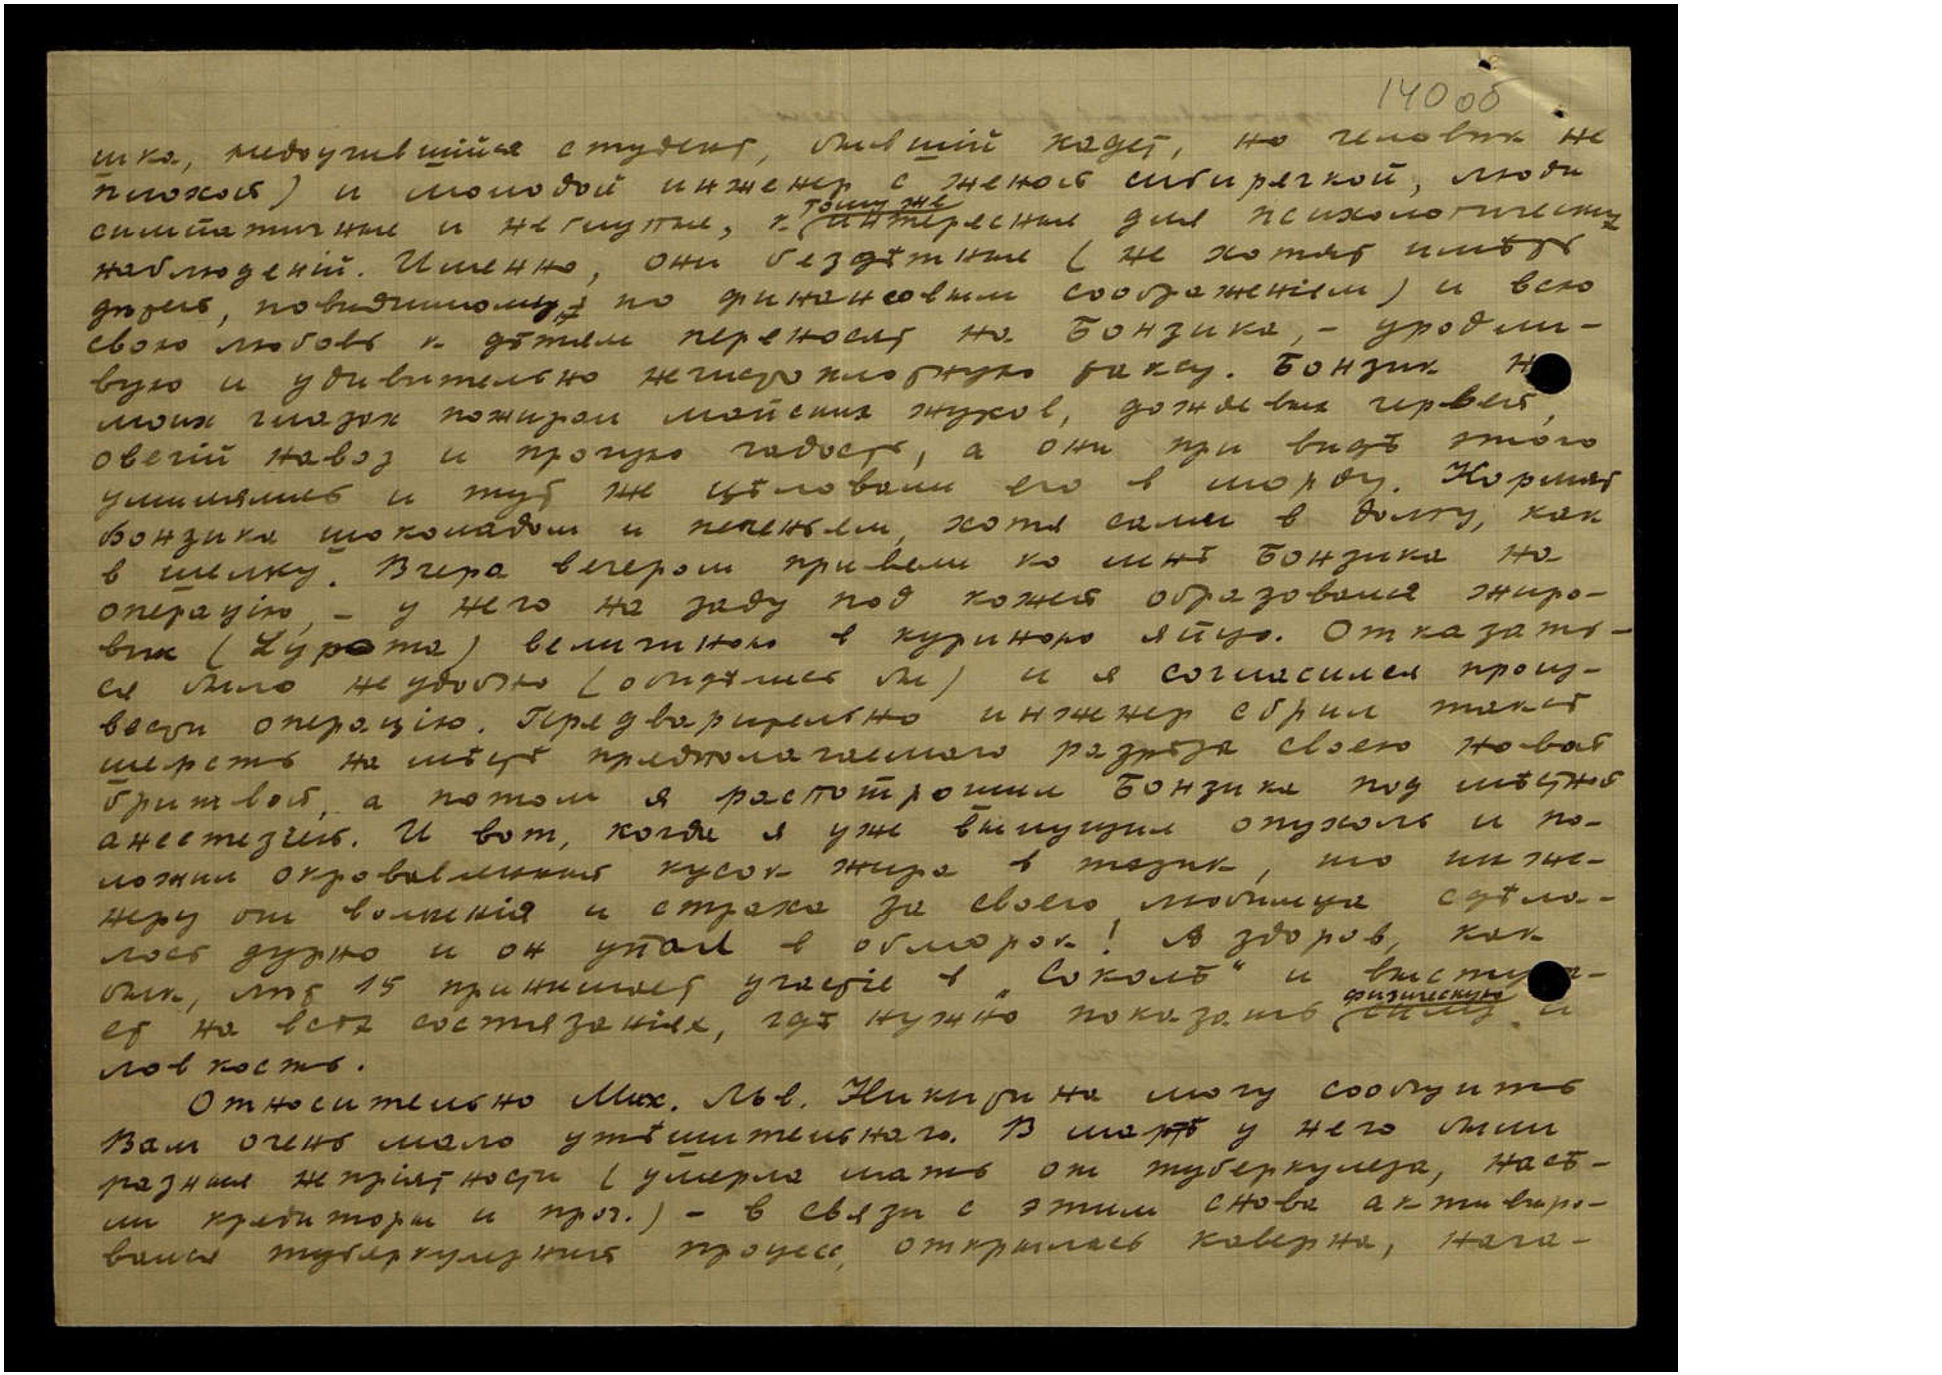 140 об
шка, недоучившійся студент, бывшій кадет, но человѣк не
плохой) и молодой инженер с женой сибирячкой, люди
симпатичные и неглупые, к тому же интересные для психологических
наблюденій. Именно, они бездѣтные (не хотят имѣть
дѣтей, повидимому, по финансовым соображеніем) и всю
свою любовь к дѣтям переносят на Бонзика, – уродли-
вую и удивительно нечистоплотную таксу. Бонзик на
моих глазах пожирал майских жуков, дождевых червей,
овечій навоз и прочую гадость, а они при видѣ этого
умилялись и тут же цѣловали его в морду. Кормят
Бонзика шоколадом и печеньем, хотя сами в долгу, как
в шелку. Вчера вечером привели ко мнѣ Бонзика на
операцію, – у него на заду под кожей образовался жиро-
вик (Lypoma) величиною в куриною яйцо. Отказать-
ся было неудобно (обидѣлись бы) и я согласился произ-
вести операцію. Предварительно инженер сбрил таксѣ
шерсть на мѣстѣ предполагаемаго разрѣза своею новой
бритвой, а потом я распотрошил Бонзика под мѣстной
анестезіей. И вот, когда я уже вылущил опухоль и по-
ложил окровавленный кусок жира в тазик, то инже-
неру от волненія и страха за своего любимца сдѣла-
лось дурно и он упал в обморок! А здоров, как
бык, лѣт 15 принимает участіе в „Соколѣ“ и выступа-
ет на всѣх состязаніях, гдѣ нужно показать физическую силу и
ловкость.
Относительно Мих. Льв. Никитина могу сообщить
Вам очень мало утѣшительнаго. В мартѣ у него были
разныя непріятности (умерла мать от туберкулеза, насѣ-
ли кредиторы и проч.) – в связи с этим снова активиро-
вался туберкулезный процесс, открылась каверна, нача-